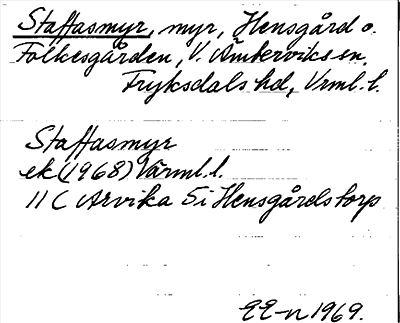 Staffasmyr, myr, Hensgård o.
Folkesgården, V. Ämterviks sn,
Fryksdals hd, Vrml. l.
Staffasmyr
ek (1968) Värml. l.
11 C Arvika 5 i Hensgårdstorp
1969.